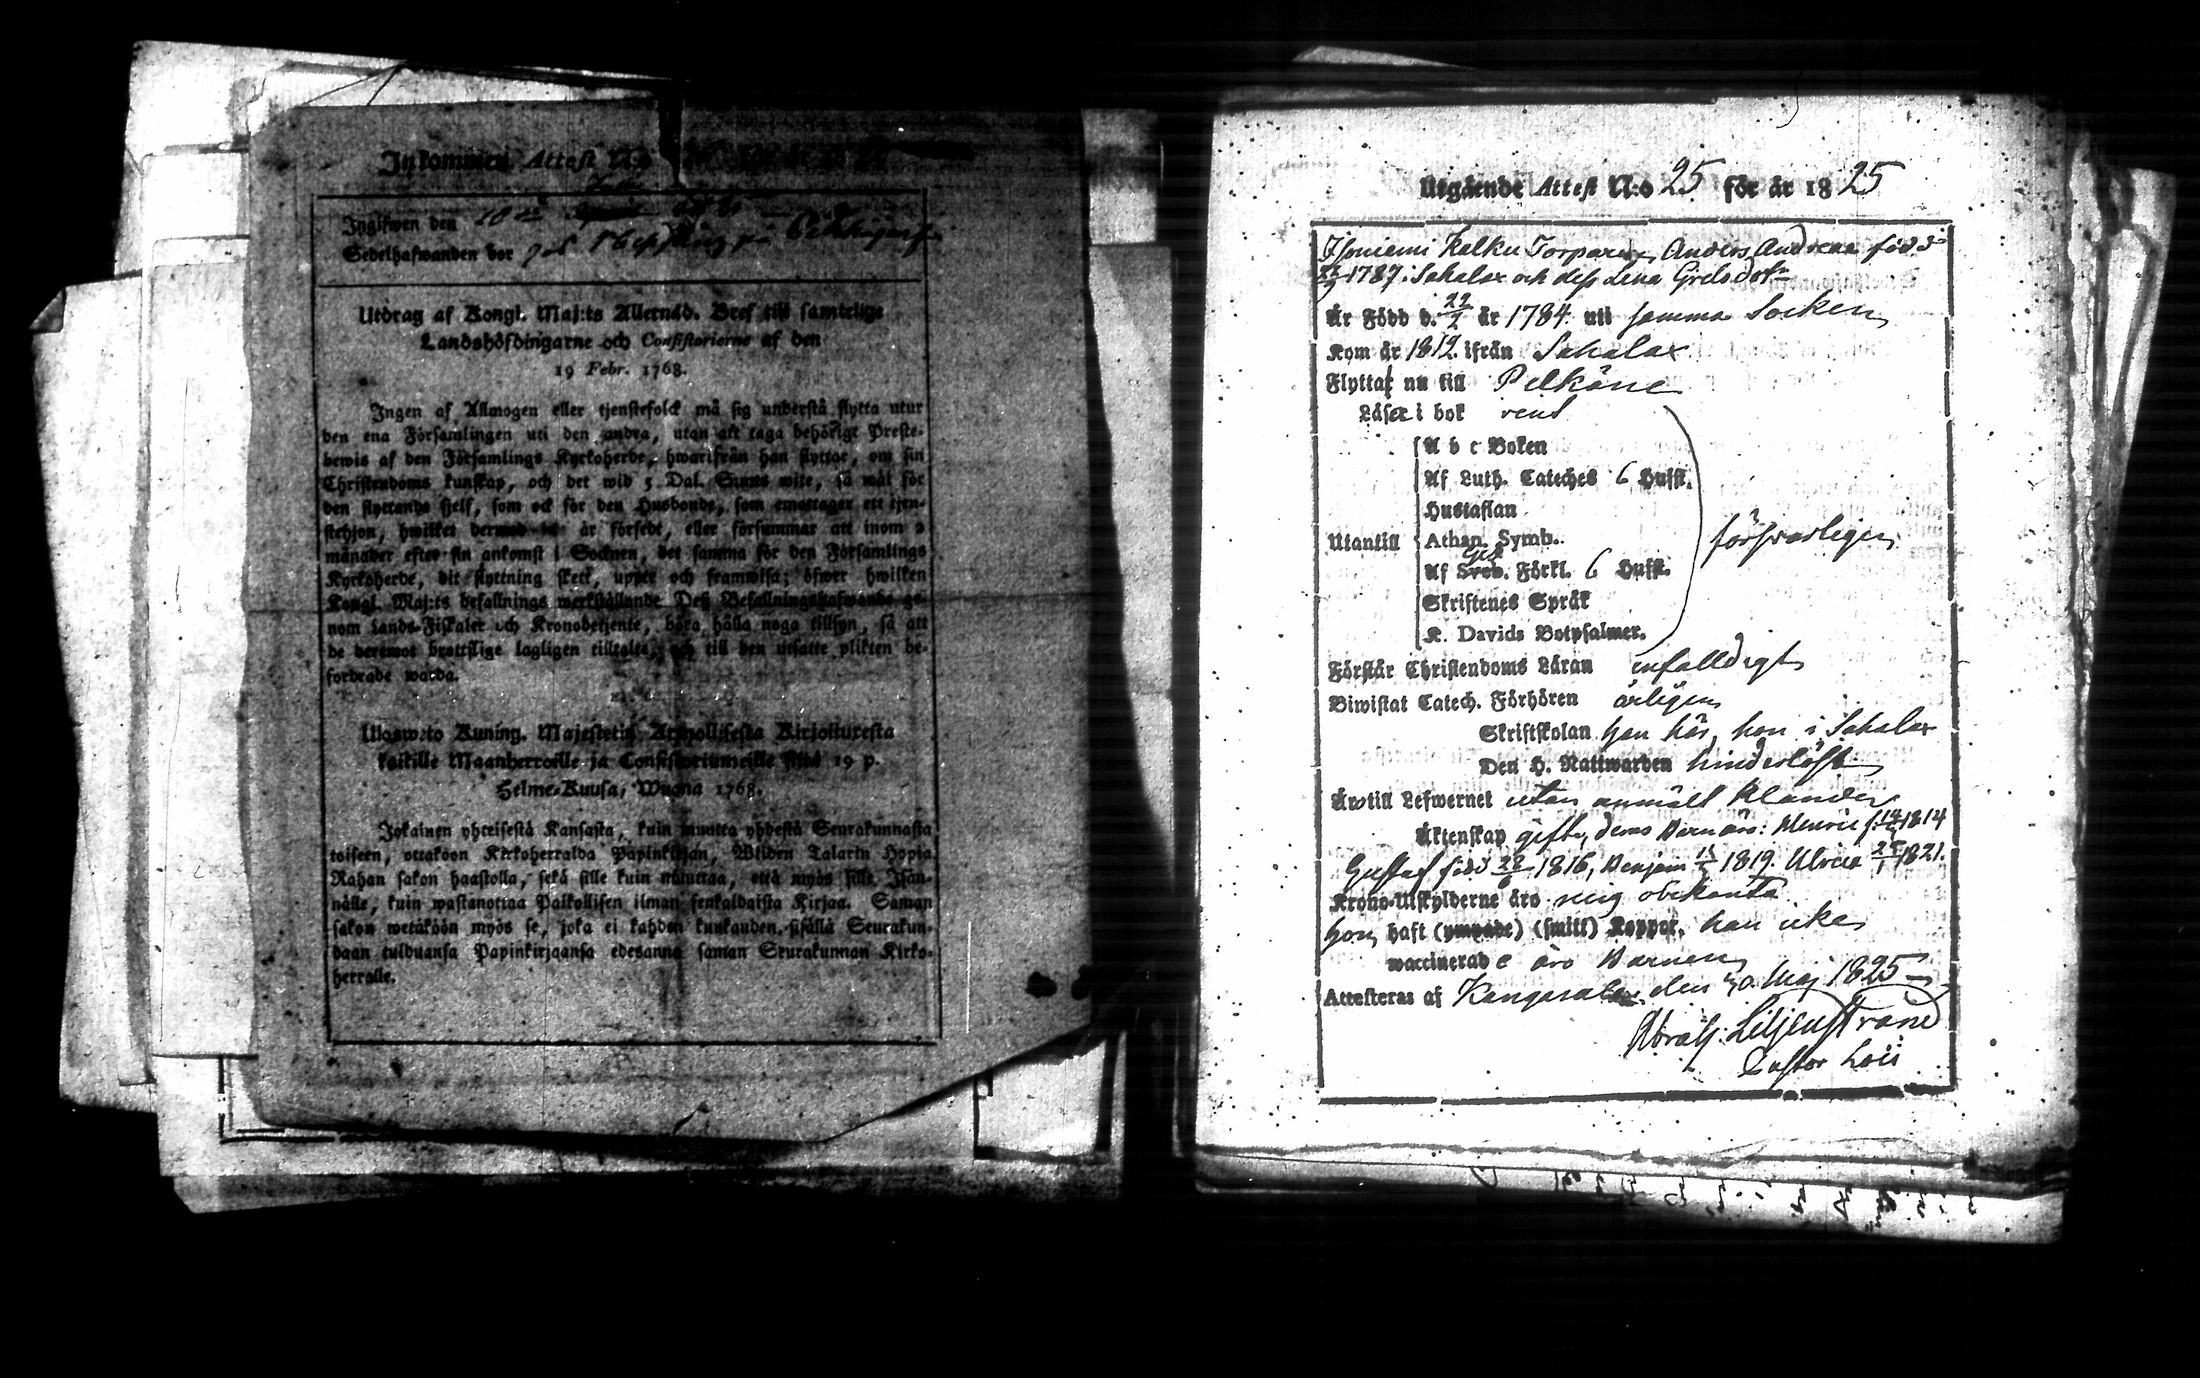 Inkommen Attest N:o
Ingifwen den 10
Sedelhafwanden bor på
Utdrag af Kongl. Maj:ts Allernåd. Bref till samtelige
Landshöfdingarne och Consistorierne af den
19 Febr. 1768.
Ingen af Allmogen eller tjenstefolck må sig understå flytta utur
den ena Församlingen uti den andra, utan att taga behörigt Preste-
bewis af den Församlings Kyrkoherde, hwarifrån han flyttar, om sin
Christendoms kunskap, och det wid 5 Dal. S:mts wite, så wäl för
den flyttande sjelf, som ock för den Husbonde, som emottager ett tjen-
stehjon, hwilket dermed är försedt, eller försummar att inom 2
månader efter sin ankomst i Socknen, det samma för den Församlings
Kyrkoherde, dit flyttning skett, uppte och framwisa; öfwer hwilken
Kongl. Maj:ts befallnings werkställande Deß Befallningshafwande ge-
nom Lands-Fiskaler och Kronobetjente, böra hålla noga tillsyn, så att
de deremot brottslige lagligen tilltalas, och till den utsatte plikten be-
fordrade warda.
Ulosweto Kuning. Majestetin Armollisesta Kirjoituresta
kaikille Maanherroille ja Consistoriumeille siitä 19 p.
Helme-Kuusa, Wuona 1768.
Jokainen yhteisestä Kansasta, kuin muutta yhdestä Seurakunnasta
toiseen, ottakoon Kirkoherralda Papinkirjan, Wiiden Talarin Hopia
Rahan sakon haastolla, sekä sille kuin muuttaa, että myös sille Isän-
nälle, kuin wastanottaa Palkollisen ilman senkaldaista Kirjaa. Saman
sakon wetäköön myös se, joka ei kahden kuukauden sisällä Seurakun-
daan tulduansa Papinkirjaansa edesanna saman Seurakunnan Kirko-
herralle.
Utgående Attest N:o 25 för år 1825
Isoniemi Kalku Torparen Anders Andreæ född
22/9 1787 i Sahalax och deß Lena Grelsdotr
Är Född d. 22/2 år 1784 uti samma Socken
Kom år 1812 ifrån Sahalax
Flyttar nu till Pelkäne
Läsa i bok rent
A b c Boken
Af Luth. Cateches 6 Hufst.
Hustaflan
Utantill Athan. Symb. försvarligen
Af Sveb. Förkl. 6 Hufst.
Skriftenes Språk
K. Davids Botpsalmer.
Förstår Christendoms Läran enfalldigt
Biwistat Catech. Förhören årligen
Skriftskolan han här, hon i Sahalax
Den H. Nattwarden hinderlöst
Äro till Lefwernet utan anmält klander
Äktenskap gifte, deras Barn äro: Henric f. 1814
Gustaf född 22/6 1816, Benjam 1819. Ulrica 1821.
Krono-Utskylderne äro mig obekanta
Hon haft (ympade) (smitt) Koppor, han icke
waccinerade äro Barnen
Attesteras af Kangasala den 30 Maj 1825
Abrah: Liljenstrand
Pastor Loci